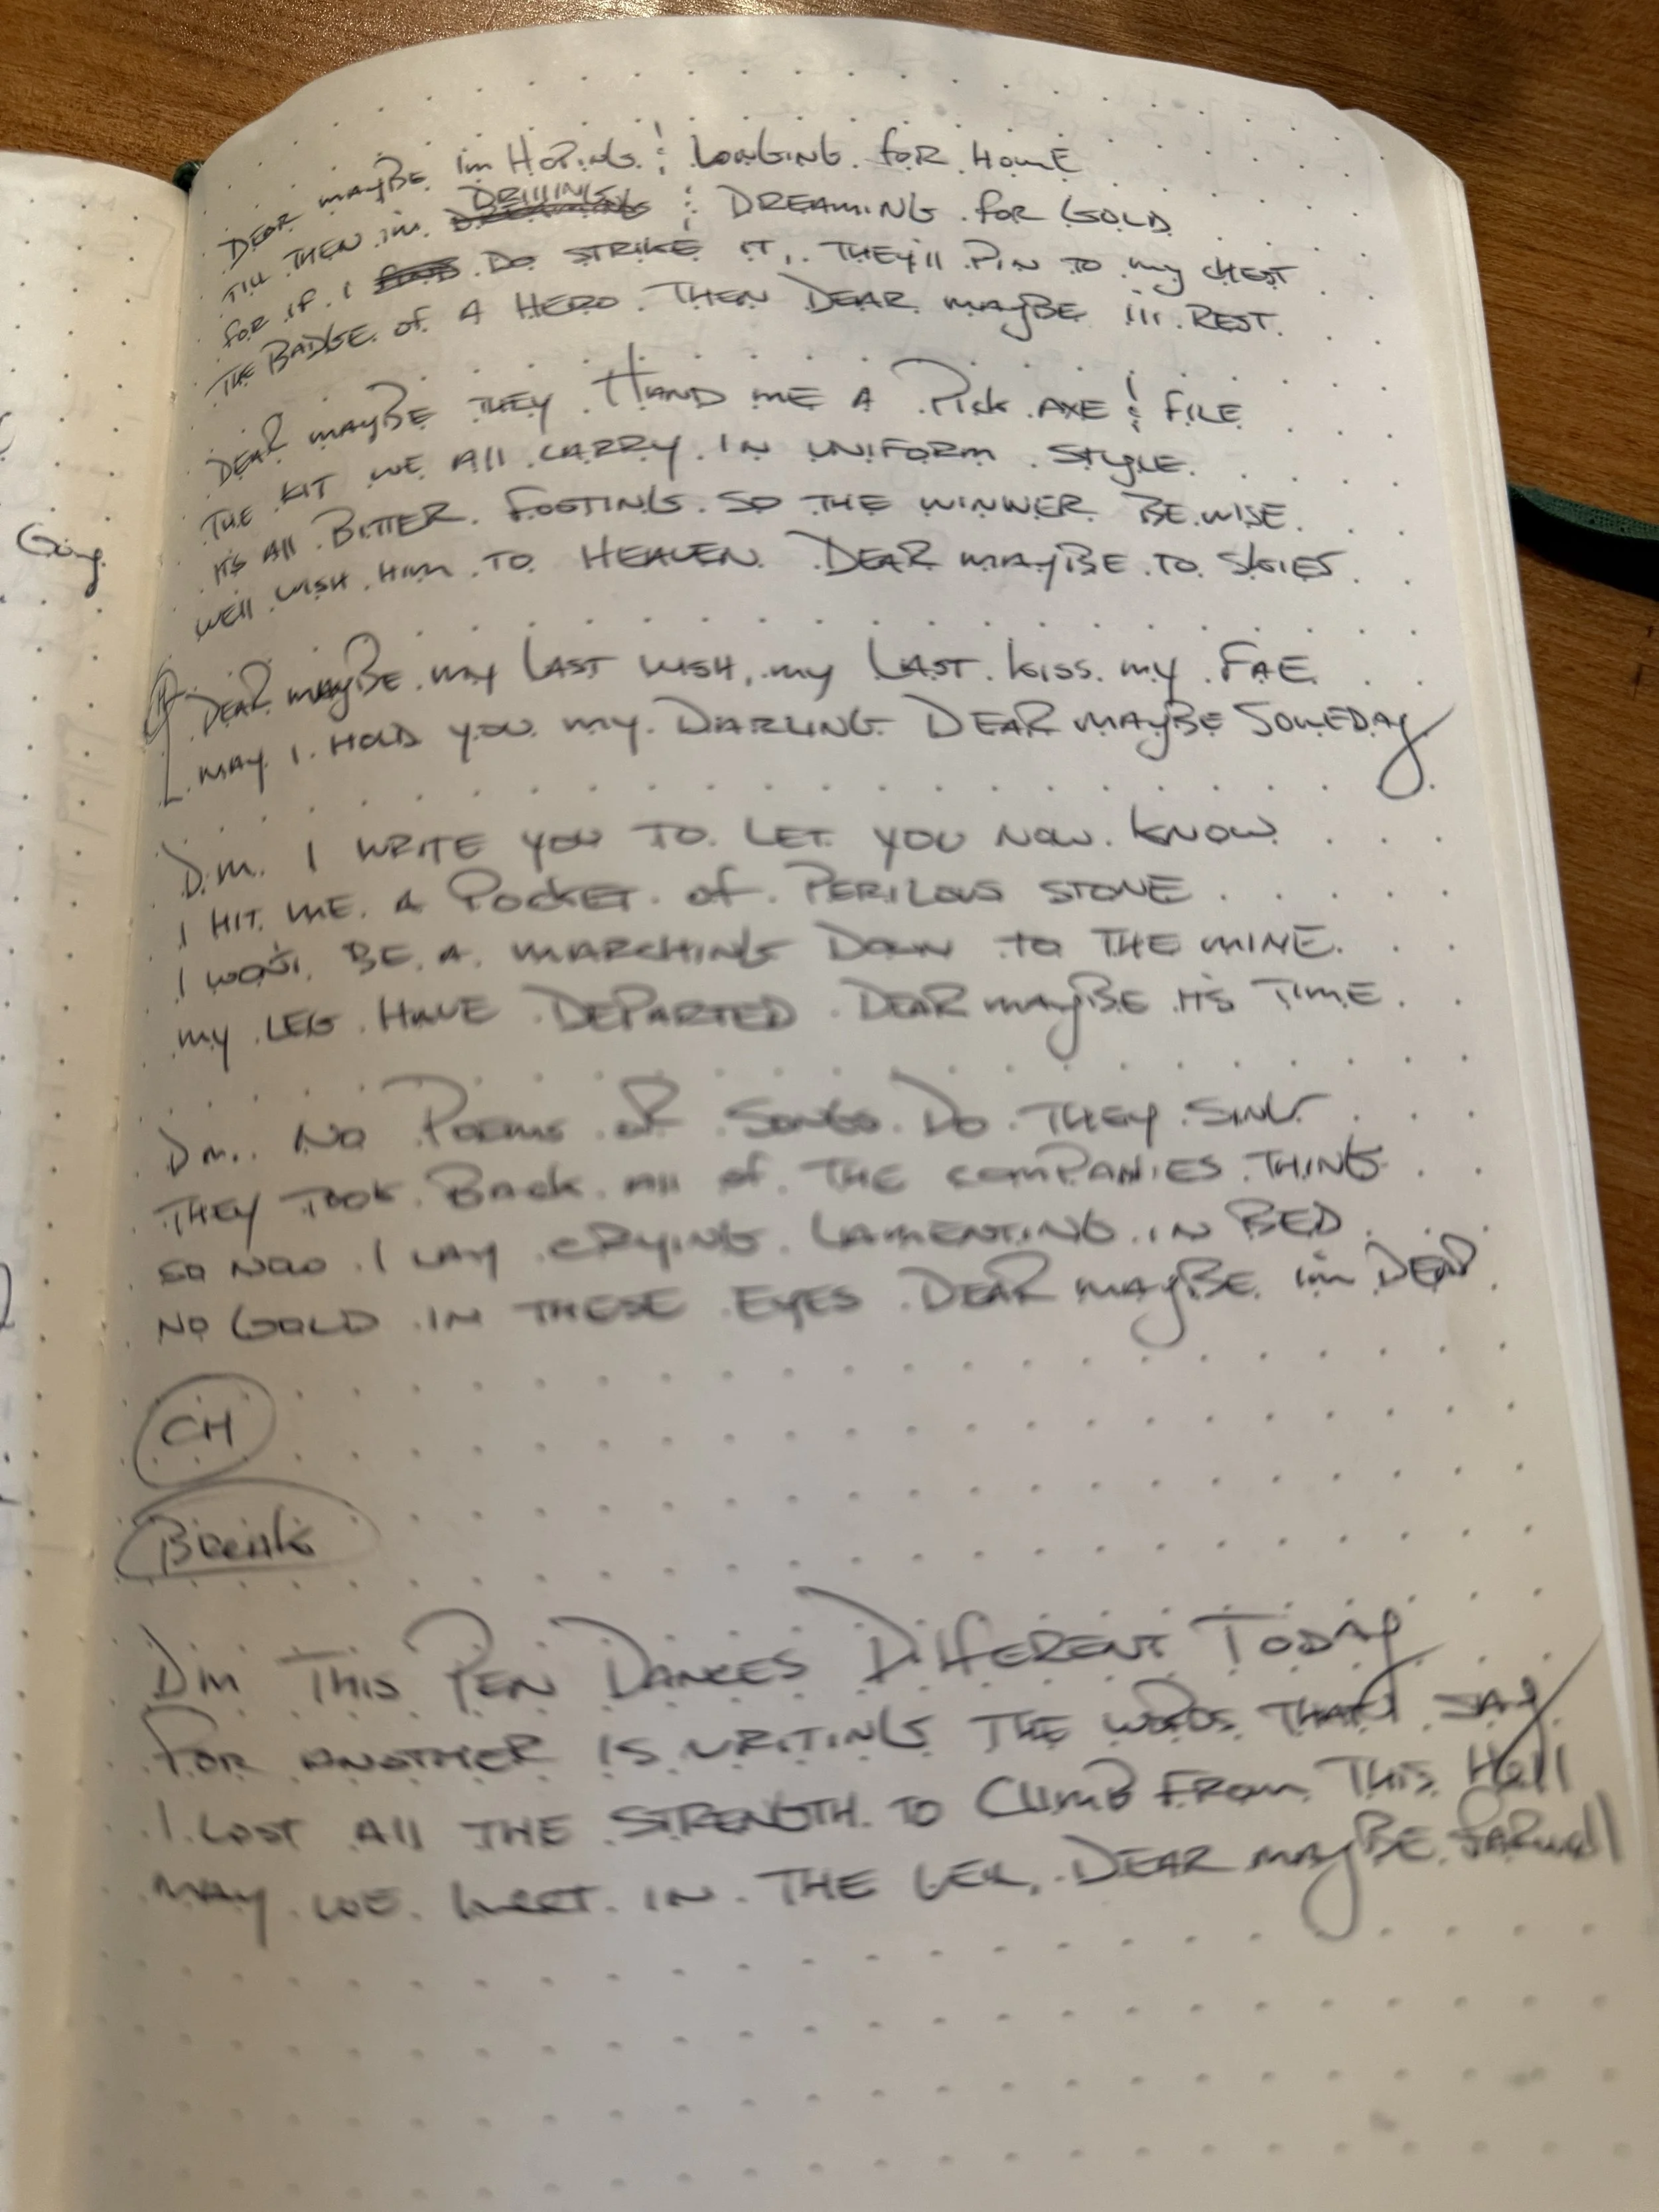 Going
DEAR MAYBE I'm HOPING & LONGING FOR HOME
TILL THEN I'M DRILLING & DREAMING FOR GOLD
FOR IF I DO STRIKE IT, THEY'll PIN TO MY CHEST
THE BADGE OF A HERO THEN DEAR MAYBE I'll REST.
DEAR MAYBE THEY HAND ME A Pick AXE & FILE
THE KIT WE All CARRY IN UNIFORM STYLE.
IT'S All BITTER FOOTING SO THE WINNER BE WISE
WE'll WISH HIM TO HEAVEN DEAR MAYBE TO SKIES
DEAR MAYBE MY LAST WISH, MY LAST KISS MY FAE
MAY I HOLD YOU MY DARLING DEAR MAYBE SOMEDAY
D.M. I WRITE YOU TO LET YOU NOW KNOW
I HIT ME A POCKET OF PERILOUS STONE
I WON'T BE A MARCHING DOWN TO THE MINE
MY LEG HAVE DEPARTED DEAR MAYBE IT'S TIME
DM. NO POEMS OR SONGS DO THEY SING
THEY TOOK BACK All OF THE COMPANIES THING
SO NOW I LAY CRYING LAMENTING IN BED
NO GOLD IN THESE EYES DEAR MAYBE I'm DEAD
CH
Break
DM THIS PEN DANCES DIFFERENT TODAY
FOR ANOTHER IS WRITING THE WORDS THAT I SAY
I LOST All THE STRENGTH TO CLIMB FROM THIS HEll
MAY WE MEET IN THE DEAR MAYBE FARWell